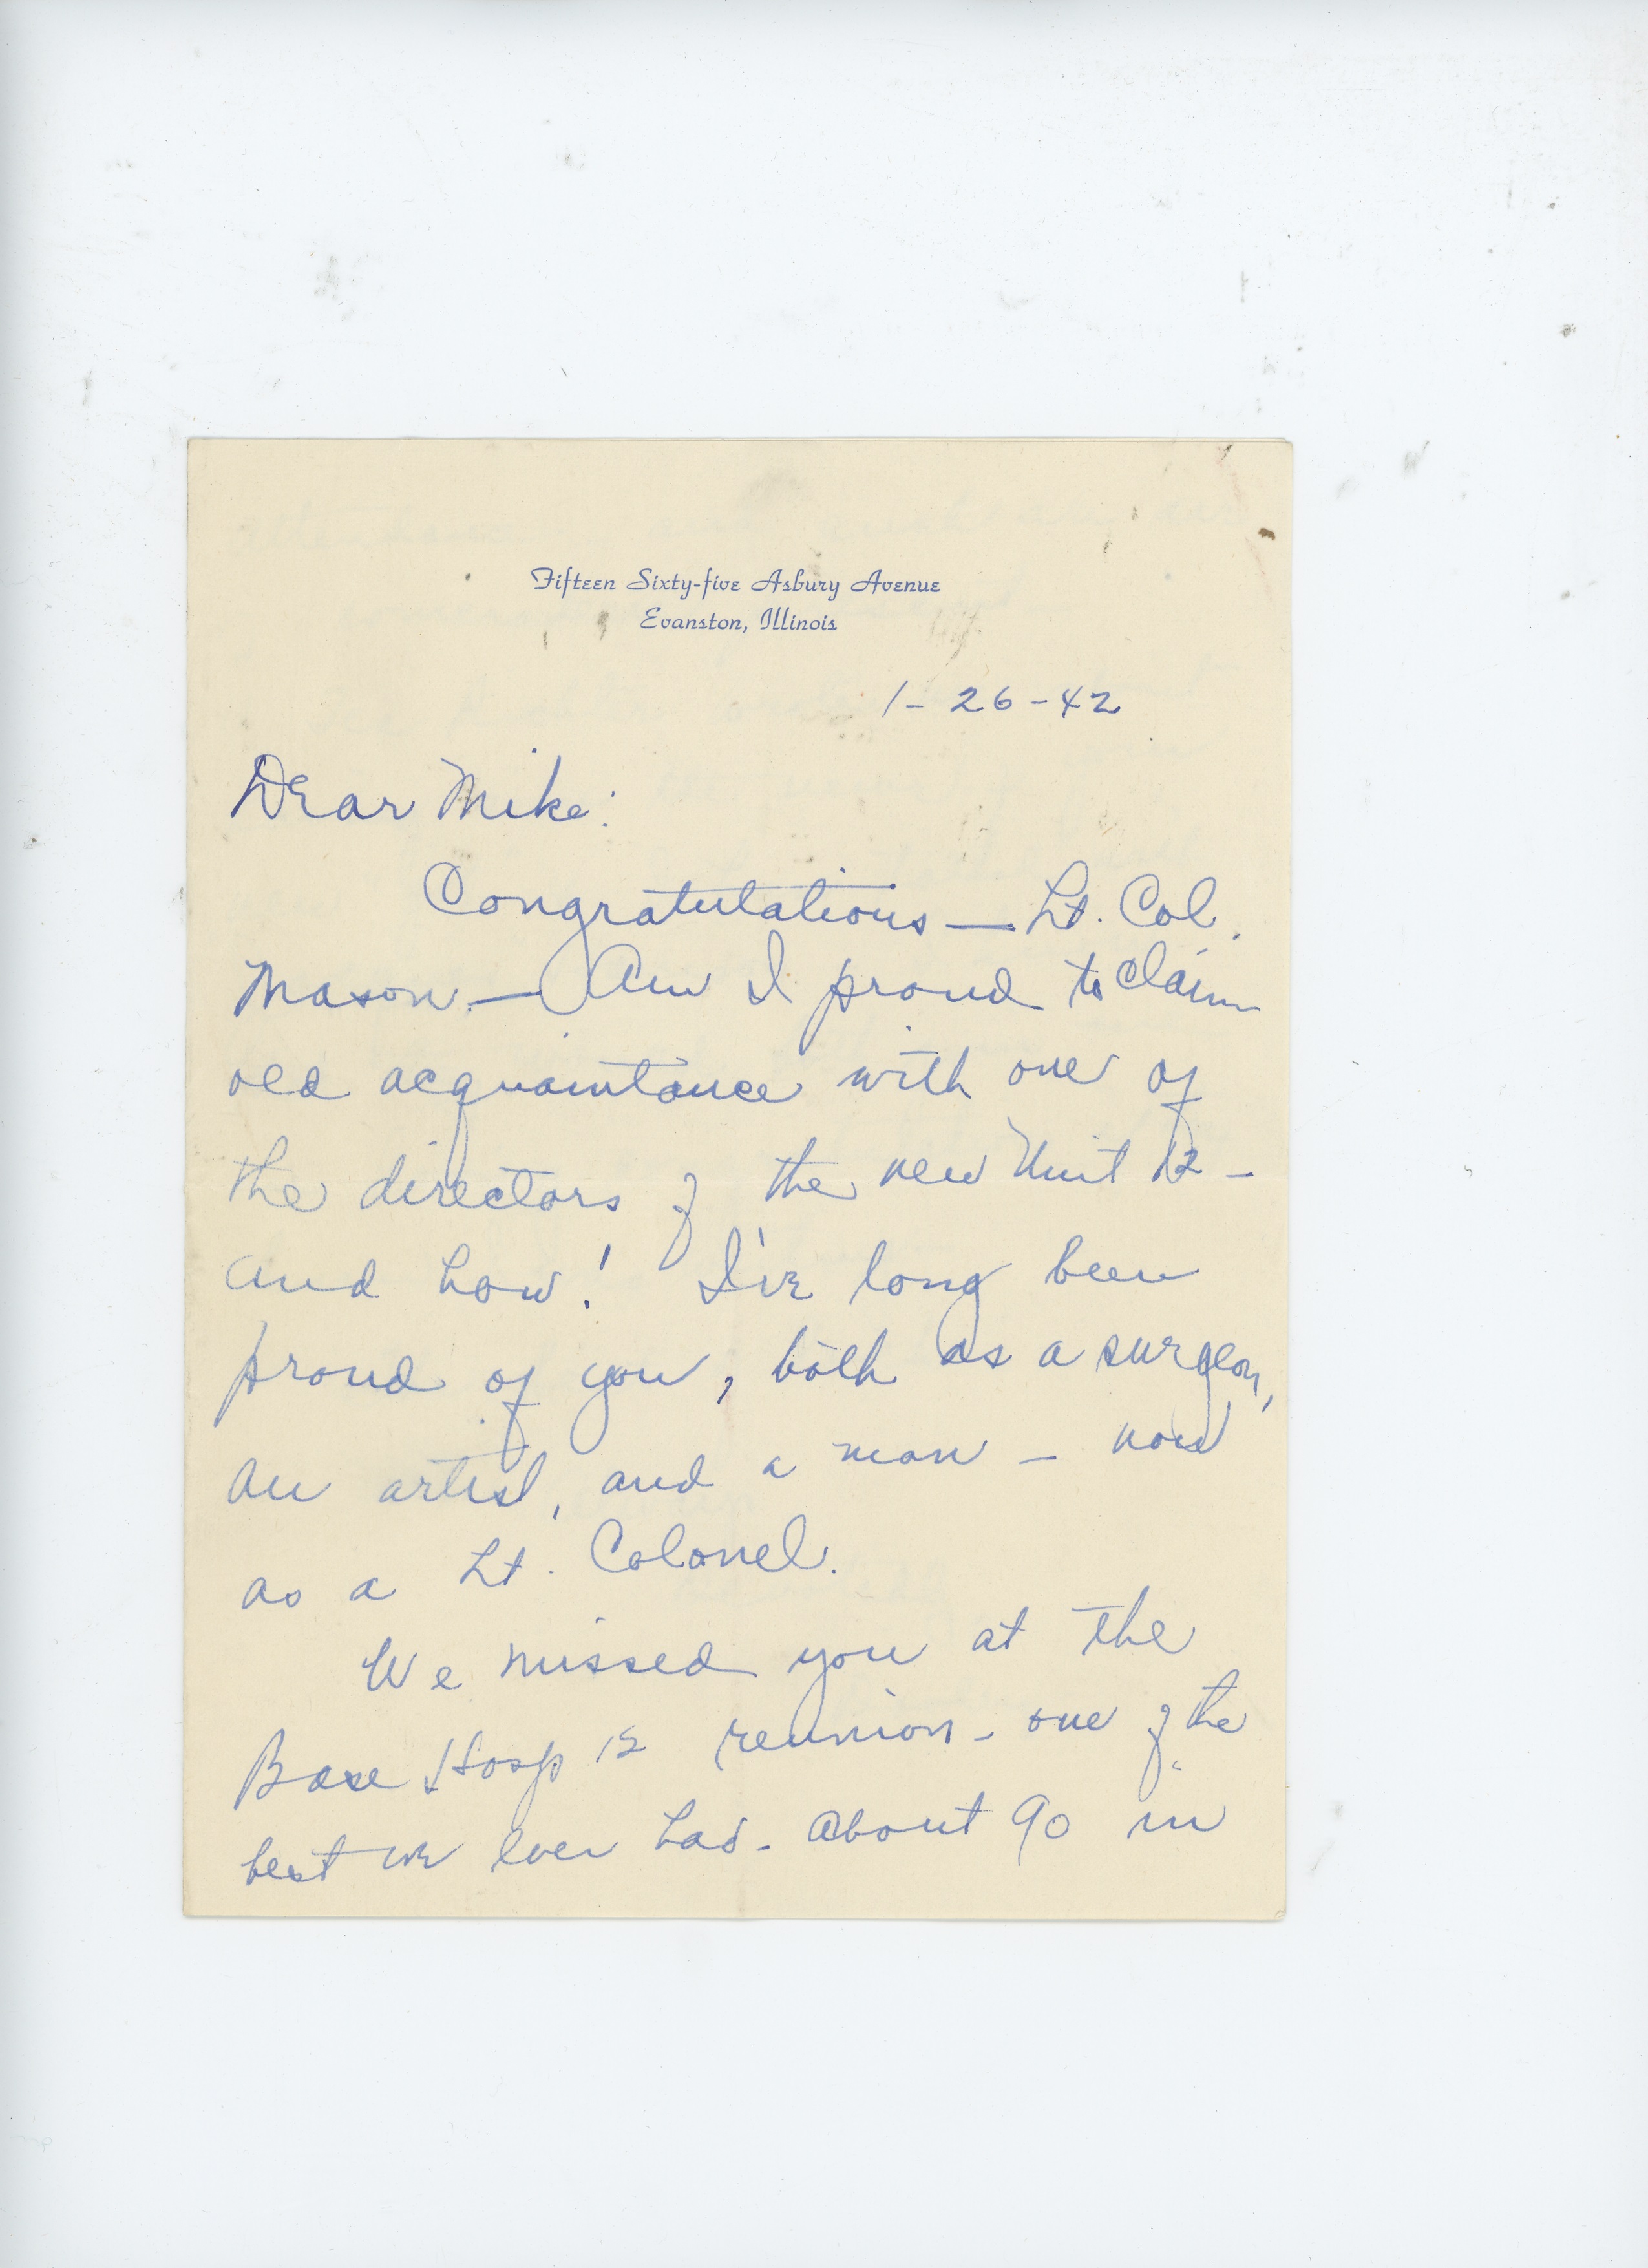 Fifteen Sixty-five Asbury Avenue
Evanston, Illinois
1-26-42
Dear Mike:
Congratulations — Lt. Col.
Mason — Am I proud to claim
old acquaintance with one of
the directors of the new Unit 12 -
and how! I've long been
proud of you, both as a surgeon,
an artist, and a man - now
as a Lt. Colonel.
We missed you at the
Base Hosp 12 reunion - one of the
best we ever had. About 90 in